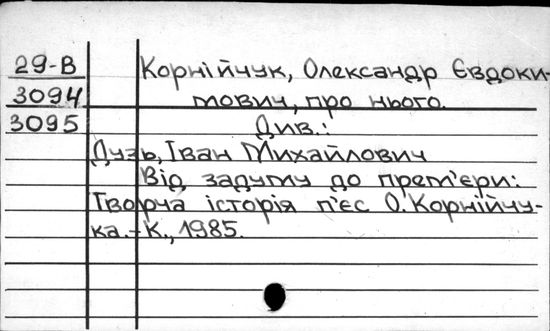 29-В Корнійчук, Олександр Євдоки-
3094 мович, про нього.
3095 Див.:
Дузь, Іван Михайлович
Від задуму до прем'єри:
Творча історія п'єс О. Корнійчу-
ка.-К., 1985.